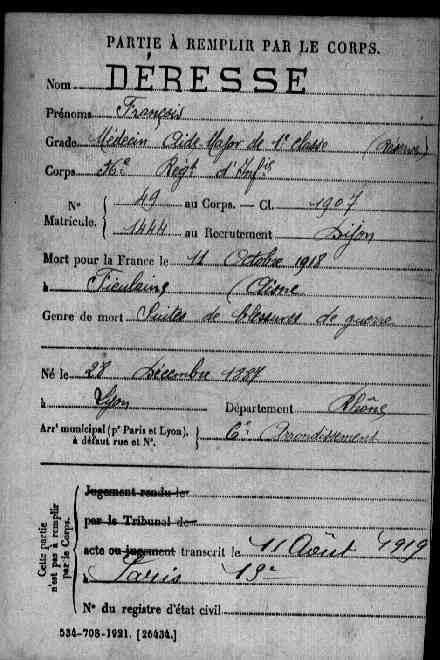 PARTIE À REMPLIR PAR LE CORPS.
Nom DÉRESSE
Prénoms François
Grade Médecin Aide Major de 1e classe (Réserve)
Corps Regt d'Infie
N° Matricule. 49 au Corps. — Cl. 1907
1444 au Recrutement Dijon
Mort pour la France le 11 Octobre 1918
à Fieulaine (Aisne
Genre de mort Suites de blessures de guerre
Né le 28 Décembre 1887
à Lyon Département Rhône
Arrt municipal (pr Paris et Lyon), à défaut rue et N°. 6e Arrondissement
Cette partie n'est pas à remplir par le Corps.
Jugement rendu le
par le Tribunal de
acte ou jugement transcrit le 11 Août 1919
à Paris 19e
N° du registre d'état civil
534-708-1921. [26434.]